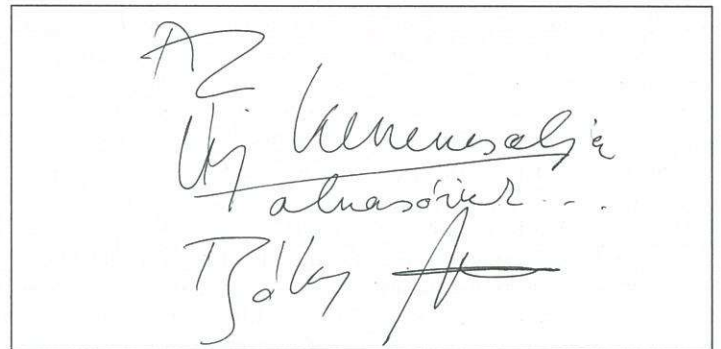 Az
Új Kemenesalja
olvasóinak...